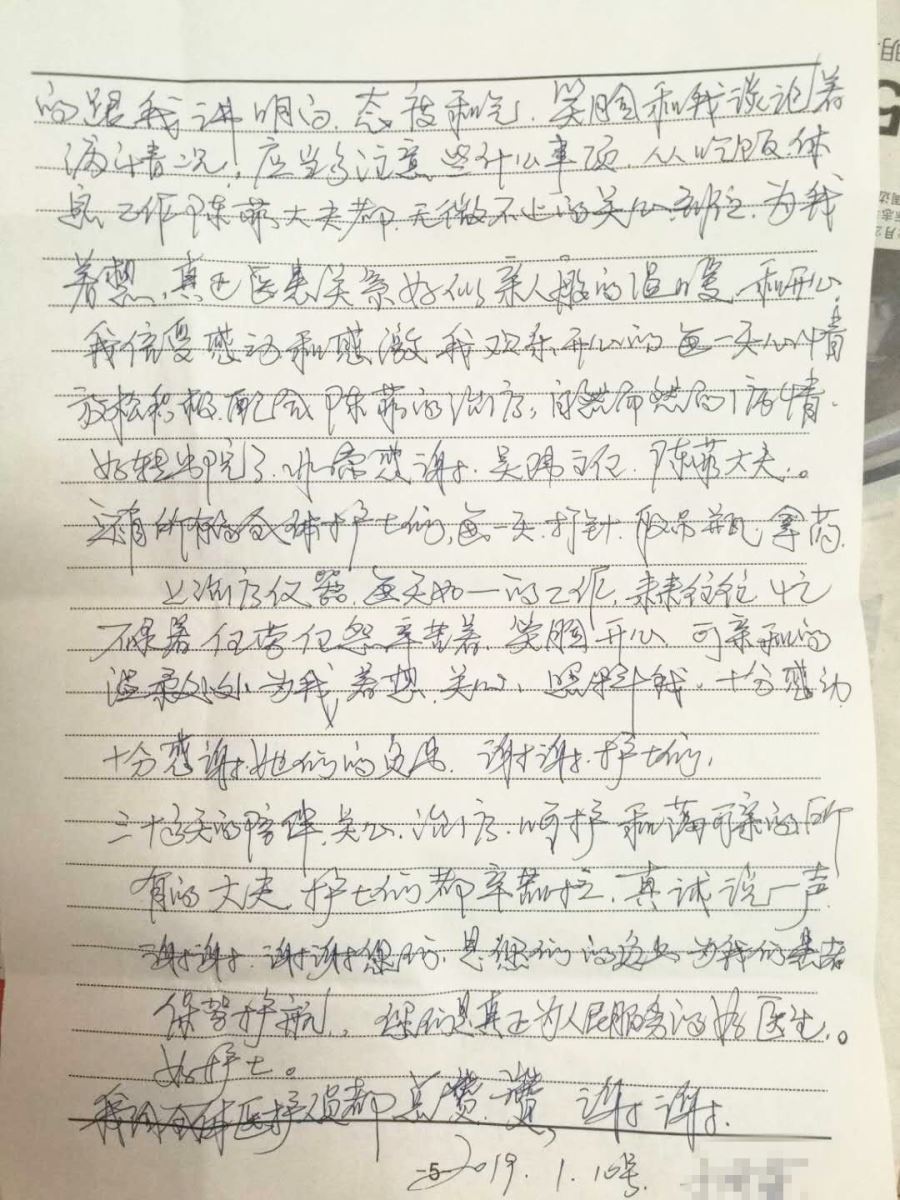 的跟我讲明白、态度和气、笑脸和我谈论着
病情情况,应当注意些什么事项、从吃饭、休
息、工作陈萍大夫都无微不止的关心到位、为我
着想、真正医患关系好似亲人般的温暖、和开心
我倍受感动和感激我欢乐开心的每一天心情
放松积极配合陈萍的治疗,自然而然的病情
好转出院了、非常感谢、吴主任、陈萍大夫。
还有所有的全体护士们,每一天打针、吊瓶、拿药
上治疗仪器、每天如一的工作、来来往往忙
任劳任怨辛苦着、笑脸开心、可亲和的
温柔处处为我着想、关心、照料我、十分感动
十分感谢她们的、谢谢、护士们,
三十天的陪伴、关心、治疗、呵护和蔼可亲的所
有的大夫护士们都辛苦、真诚说一声
谢谢、谢谢您们、是您们的为我们患者
保驾护航!、您们是真正为人民服务的好医生、。
好护士。
我给全体医护人员都点赞、赞、谢谢
-5- 2019、1、10号、
月
5